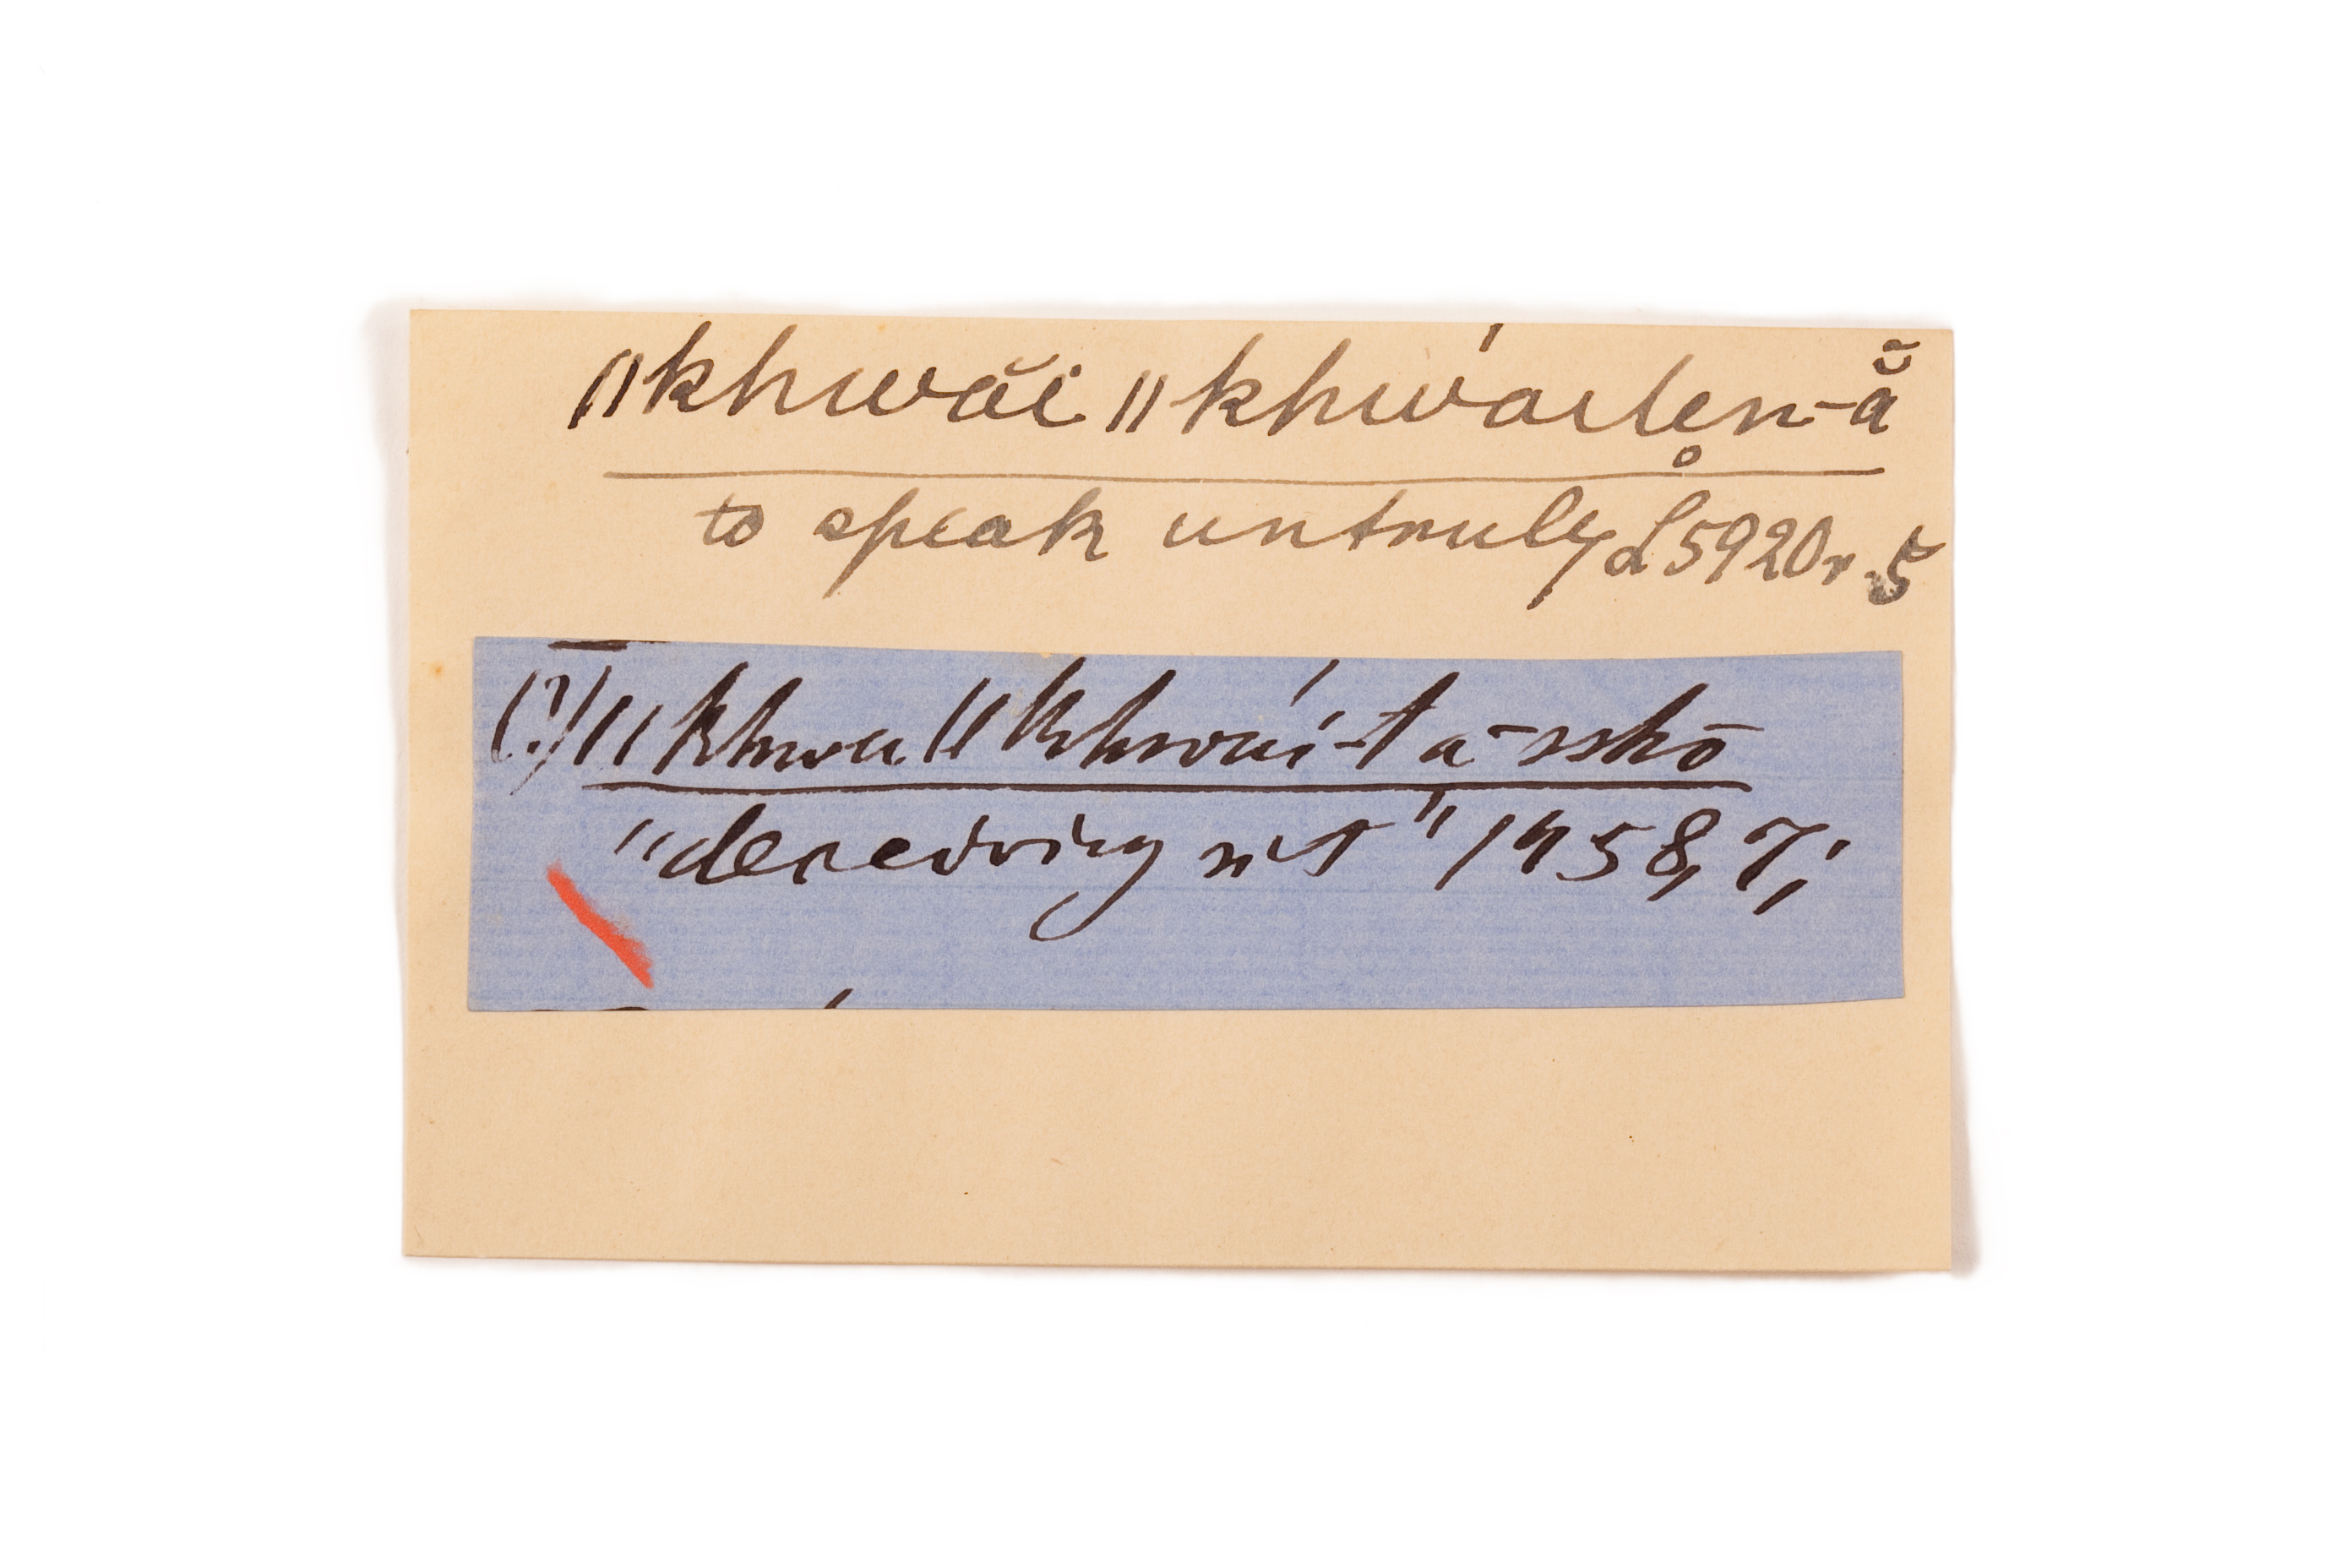 ||khwăi ||khwái̊ten-ã̆
to speak untruly L5920r.5
(?)||khwa ||khwái-ta-sshō
"deceiving not" 1458,7;